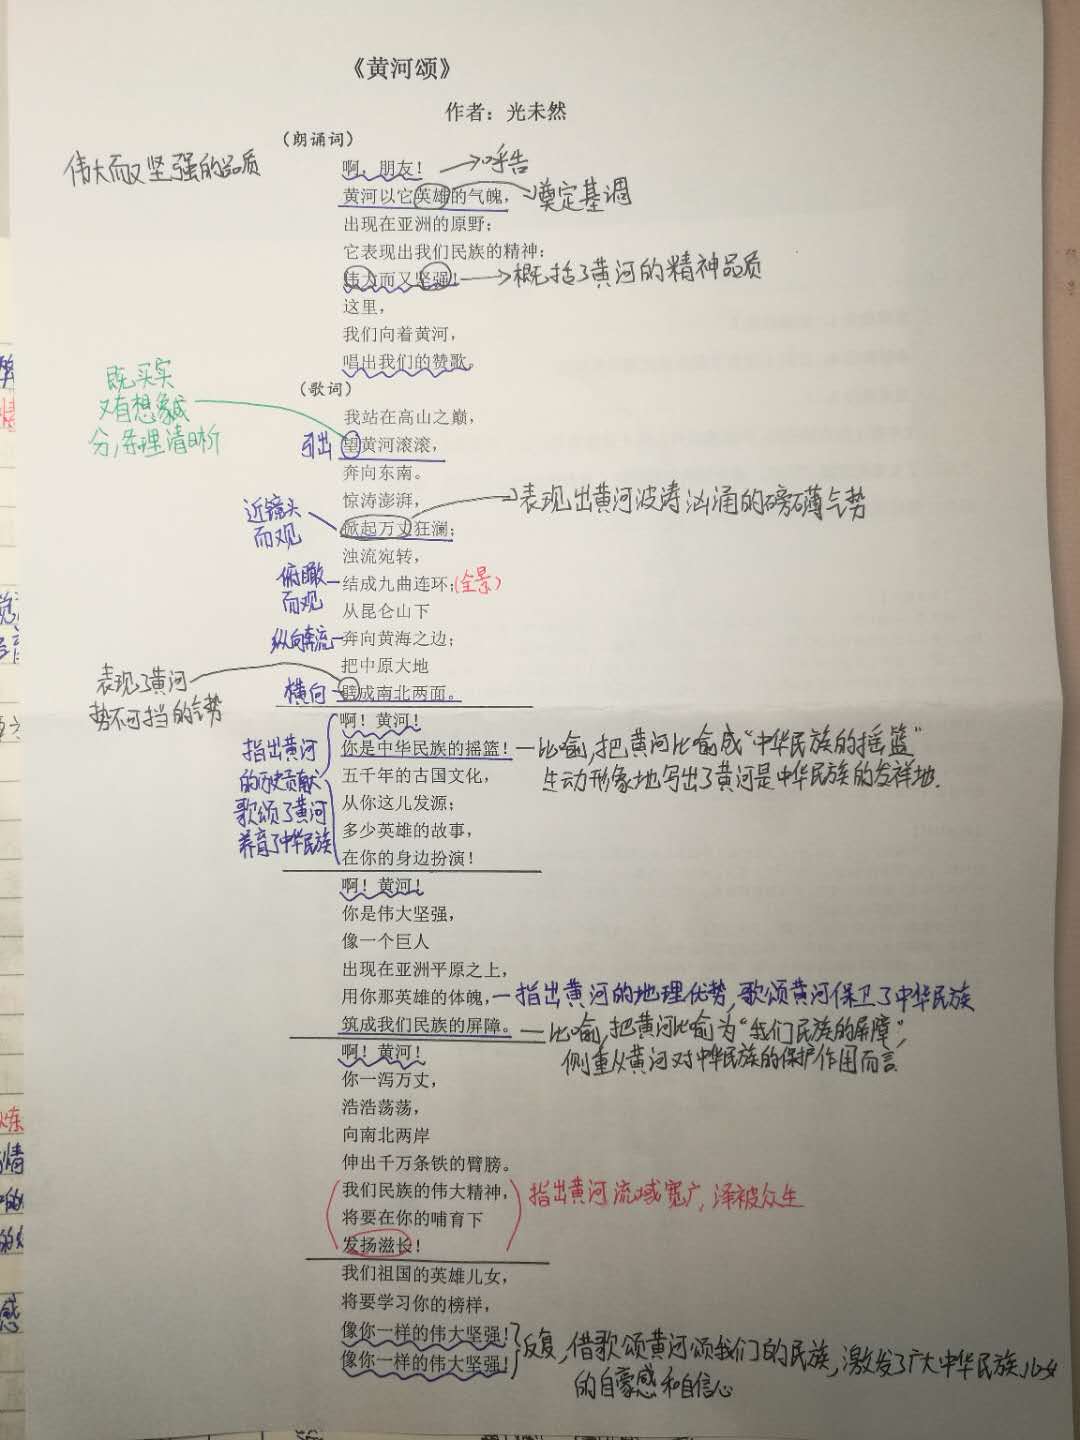 《黄河颂》
作者：光未然
（朗诵词）
伟大而又坚强的品质
啊，朋友！
呼告
黄河以它英雄的气魄，
奠定基调
出现在亚洲的原野；
它表现出我们民族的精神：
伟大而又坚强！
概括了黄河的精神品质
这里，
我们向着黄河，
唱出我们的赞歌。
（歌词）
既实
又有想象成
分，条理清晰
我站在高山之巅，
引出
望黄河滚滚，
奔向东南。
惊涛澎湃，
近镜头
而观
掀起万丈狂澜；
表现出黄河波涛汹涌的磅礴气势
浊流宛转，
俯瞰
而观
结成九曲连环；
(全景)
从昆仑山下
纵向奔流
奔向黄海之边；
把中原大地
横向
劈成南北两面。
表现了黄河
势不可挡的气势
啊！黄河！
你是中华民族的摇篮！
比喻，把黄河比喻成“中华民族的摇篮”
生动形象地写出了黄河是中华民族的发祥地.
指出黄河
的历史贡献
歌颂了黄河
养育了中华民族
五千年的古国文化，
从你这儿发源；
多少英雄的故事，
在你的身边扮演！
啊！黄河！
你是伟大坚强，
像一个巨人
出现在亚洲平原之上，
用你那英雄的体魄，
指出黄河的地理优势，歌颂黄河保卫了中华民族
筑成我们民族的屏障。
比喻，把黄河比喻为“我们民族的屏障”，
侧重从黄河对中华民族的保护作用而言
啊！黄河！
你一泻万丈，
浩浩荡荡，
向南北两岸
伸出千万条铁的臂膀。
我们民族的伟大精神，
将要在你的哺育下
发扬滋长！
指出黄河流域宽广，泽被众生
我们祖国的英雄儿女，
将要学习你的榜样，
像你一样的伟大坚强！
像你一样的伟大坚强！
反复，借歌颂黄河颂我们的民族，激发了广大中华民族儿女
的自豪感和自信心